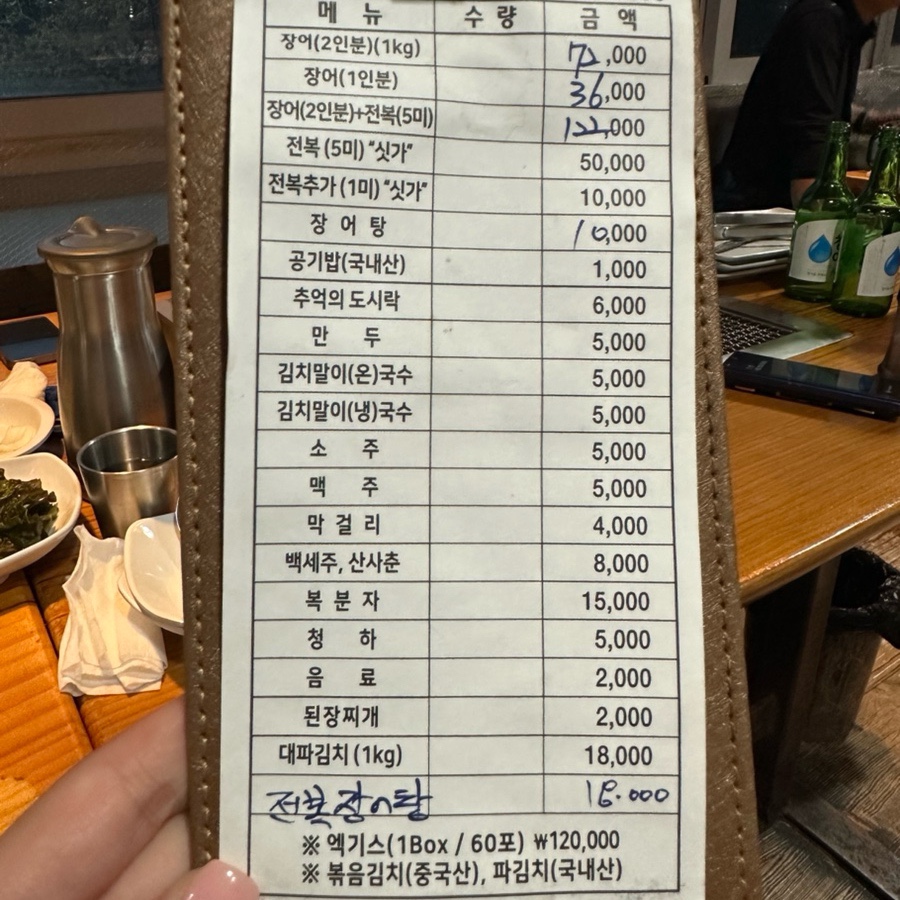 메 뉴 수 량 금 액
장어(2인분)(1kg) 72,000
장어(1인분) 36,000
장어(2인분)+전복(5미) 122,000
전복 (5미) “싯가” 50,000
전복추가 (1미) “싯가” 10,000
장 어 탕 10,000
공기밥(국내산) 1,000
추억의 도시락 6,000
만 두 5,000
김치말이(온)국수 5,000
김치말이(냉)국수 5,000
소 주 5,000
맥 주 5,000
막 걸 리 4,000
백세주, 산사춘 8,000
복 분 자 15,000
청 하 5,000
음 료 2,000
된장찌개 2,000
대파김치 (1kg) 18,000
전복장어탕 18.000
※ 엑기스(1Box / 60포) ₩120,000
※ 볶음김치(중국산), 파김치(국내산)